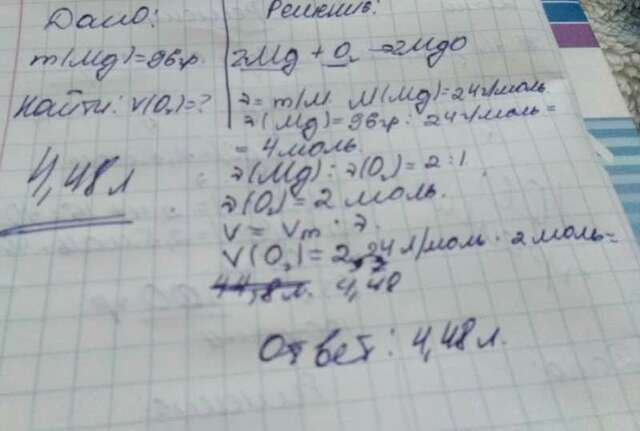 Дано:
m(Mg)=96гр.
Найти: V(O₂)=?
4,48л
Решение:
2Mg + O₂ → 2MgO
ν = m/M. M(Mg)=24г/моль.
ν(Mg)=96гр : 24г/моль=
= 4моль.
ν(Mg) : ν(O₂)= 2:1
ν(O₂)= 2 моль.
V = Vm · ν.
V(O₂)= 2,24л/моль · 2моль=
44,8л. 4,48
Ответ: 4,48л.